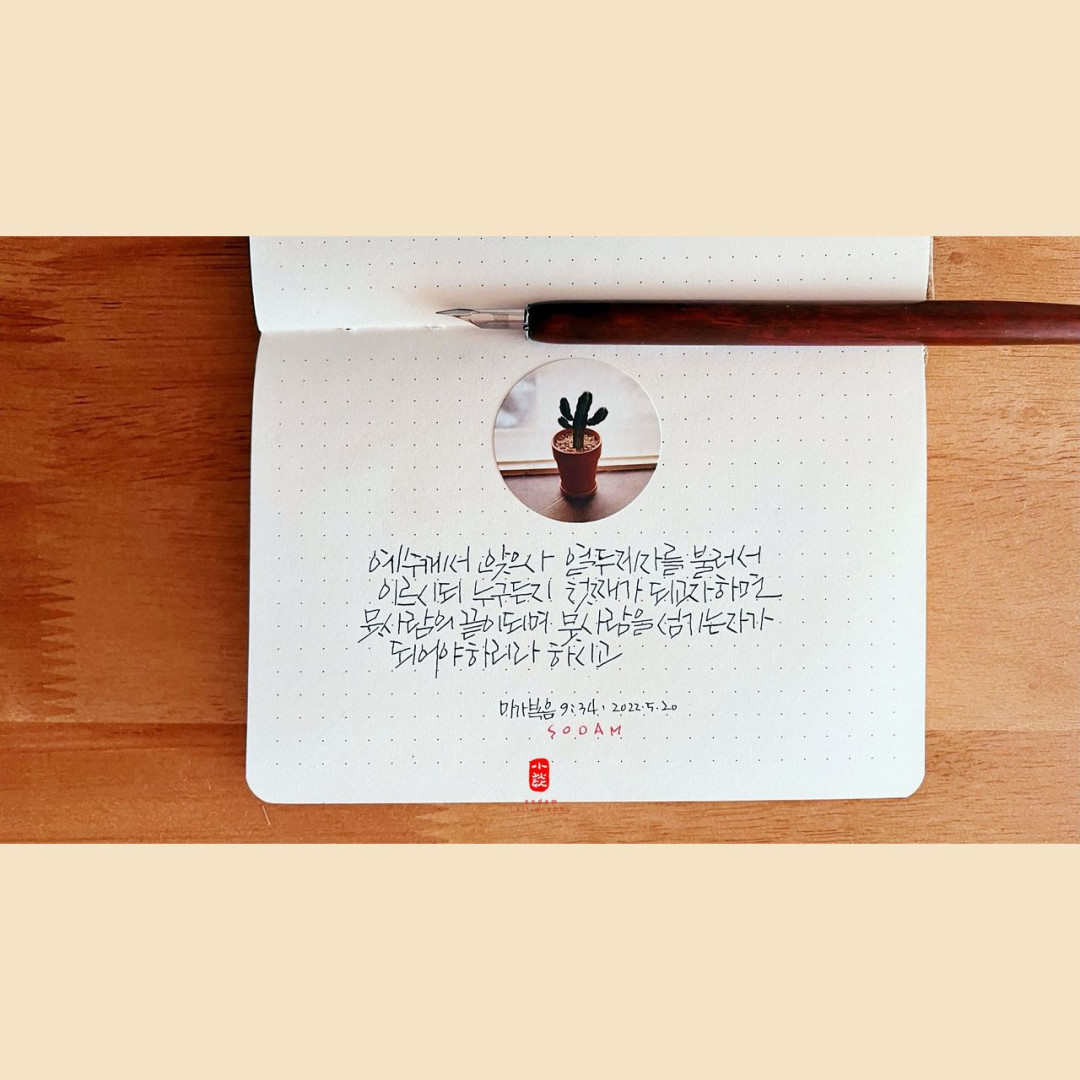 예수께서 앉으사 열두제자를 불러서
이르시되 누구든지 첫째가 되고자하면
뭇사람의 끝이되며 뭇사람을 섬기는자가
되어야하리라 하시고
마가복음 9:34. 2022.5.20
SODAM
小
sodam